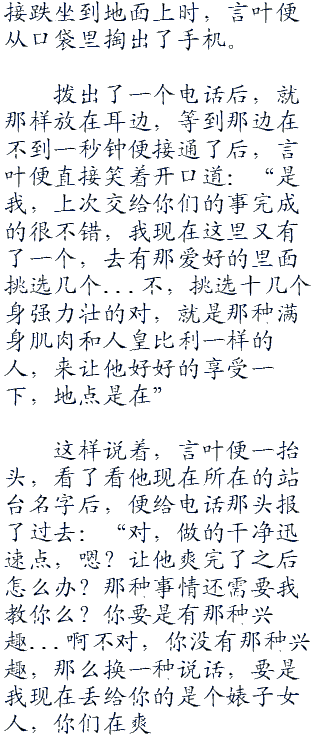 接跌坐到地面上时，言叶便
从口袋里掏出了手机。
拨出了一个电话后，就
那样放在耳边，等到那边在
不到一秒钟便接通了后，言
叶便直接笑着开口道：“是
我，上次交给你们的事完成
的很不错，我现在这里又有
了一个，去有那爱好的里面
挑选几个...不，挑选十几个
身强力壮的对，就是那种满
身肌肉和人皇比利一样的
人，来让他好好的享受一
下，地点是在”
这样说着，言叶便一抬
头，看了看他现在所在的站
台名字后，便给电话那头报
了过去：“对，做的干净迅
速点，嗯？让他爽完了之后
怎么办？那种事情还需要我
教你么？你要是有那种兴
趣...啊不对，你没有那种兴
趣，那么换一种说话，要是
我现在丢给你的是个婊子女
人，你们在爽